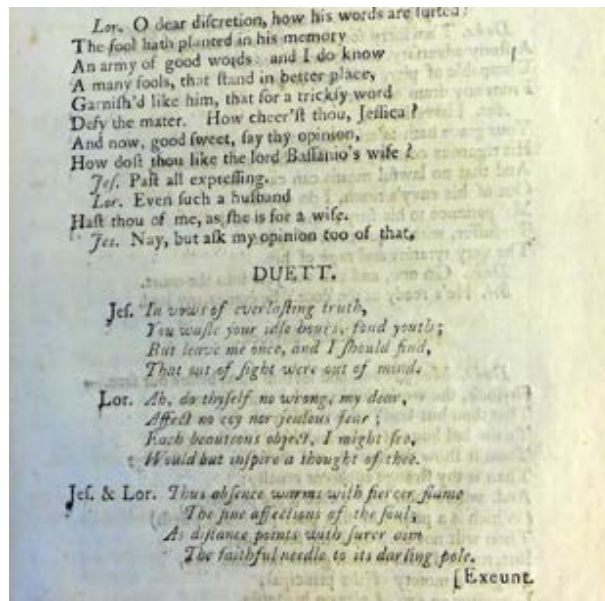 Lor. O dear diſcretion, how his words are ſuited!
The fool hath planted in his memory
An army of good words: and I do know
A many fools, that ſtand in better place,
Garniſh'd like him, that for a trickſy word
Defy the mater. How cheer'ſt thou, Jeſſica?
And now, good ſweet, ſay thy opinion,
How doſt thou like the lord Baſſanio's wife?
Jeſ. Paſt all expreſſing.
Lor. Even ſuch a huſband
Haſt thou of me, as ſhe is for a wife.
Jes. Nay, but aſk my opinion too of that.
DUETT.
Jeſ. In vows of everlaſting truth,
You waſte your idle hours, fond youth;
But leave me once, and I ſhould find,
That out of ſight were out of mind.
Lor. Ah, do thyſelf no wrong, my dear,
Affect no coy nor jealous fear;
Each beauteous object, I might ſee,
Would but inſpire a thought of thee.
Jeſ. & Lor. Thus abſence warms with fiercer flame
The fine affections of the ſoul;
As diſtance points with ſurer aim
The faithful needle to its darling pole.
[Exeunt.